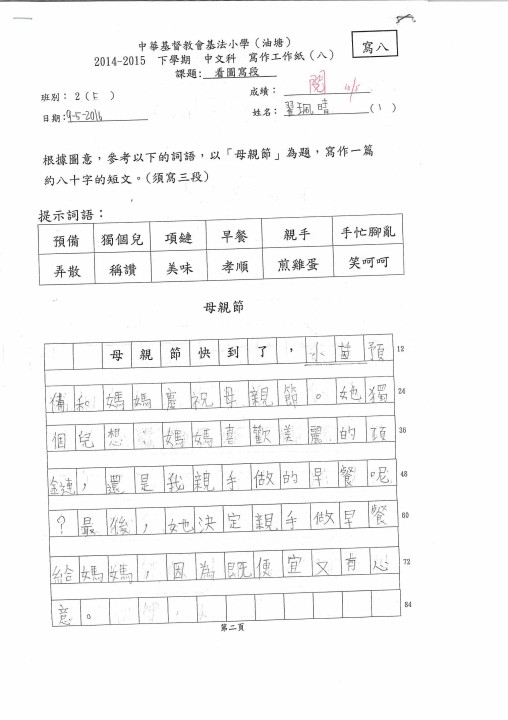 中華基督教會基法小學（油塘）
寫八
2014-2015 下學期 中文科 寫作工作紙（八）
課題: 看圖寫段
成績： 閱
班別： 2 ( E )
姓名： 翟珮晴 ( 1 )
日期: 9-5-2014
根據圖意，參考以下的詞語，以「母親節」為題，寫作一篇
約八十字的短文。(須寫三段)
提示詞語：
預備 獨個兒 項鏈 早餐 親手 手忙腳亂
弄散 稱讚 美味 孝順 煎雞蛋 笑呵呵
母親節
母親節快到了，小苗預 12
備和媽媽慶祝母親節。她獨 24
個兒想：媽媽喜歡美麗的項 36
鏈，還是我親手做的早餐呢 48
？最後，她決定親手做早餐 60
給媽媽，因為既便宜又有心 72
意。 84
第二頁